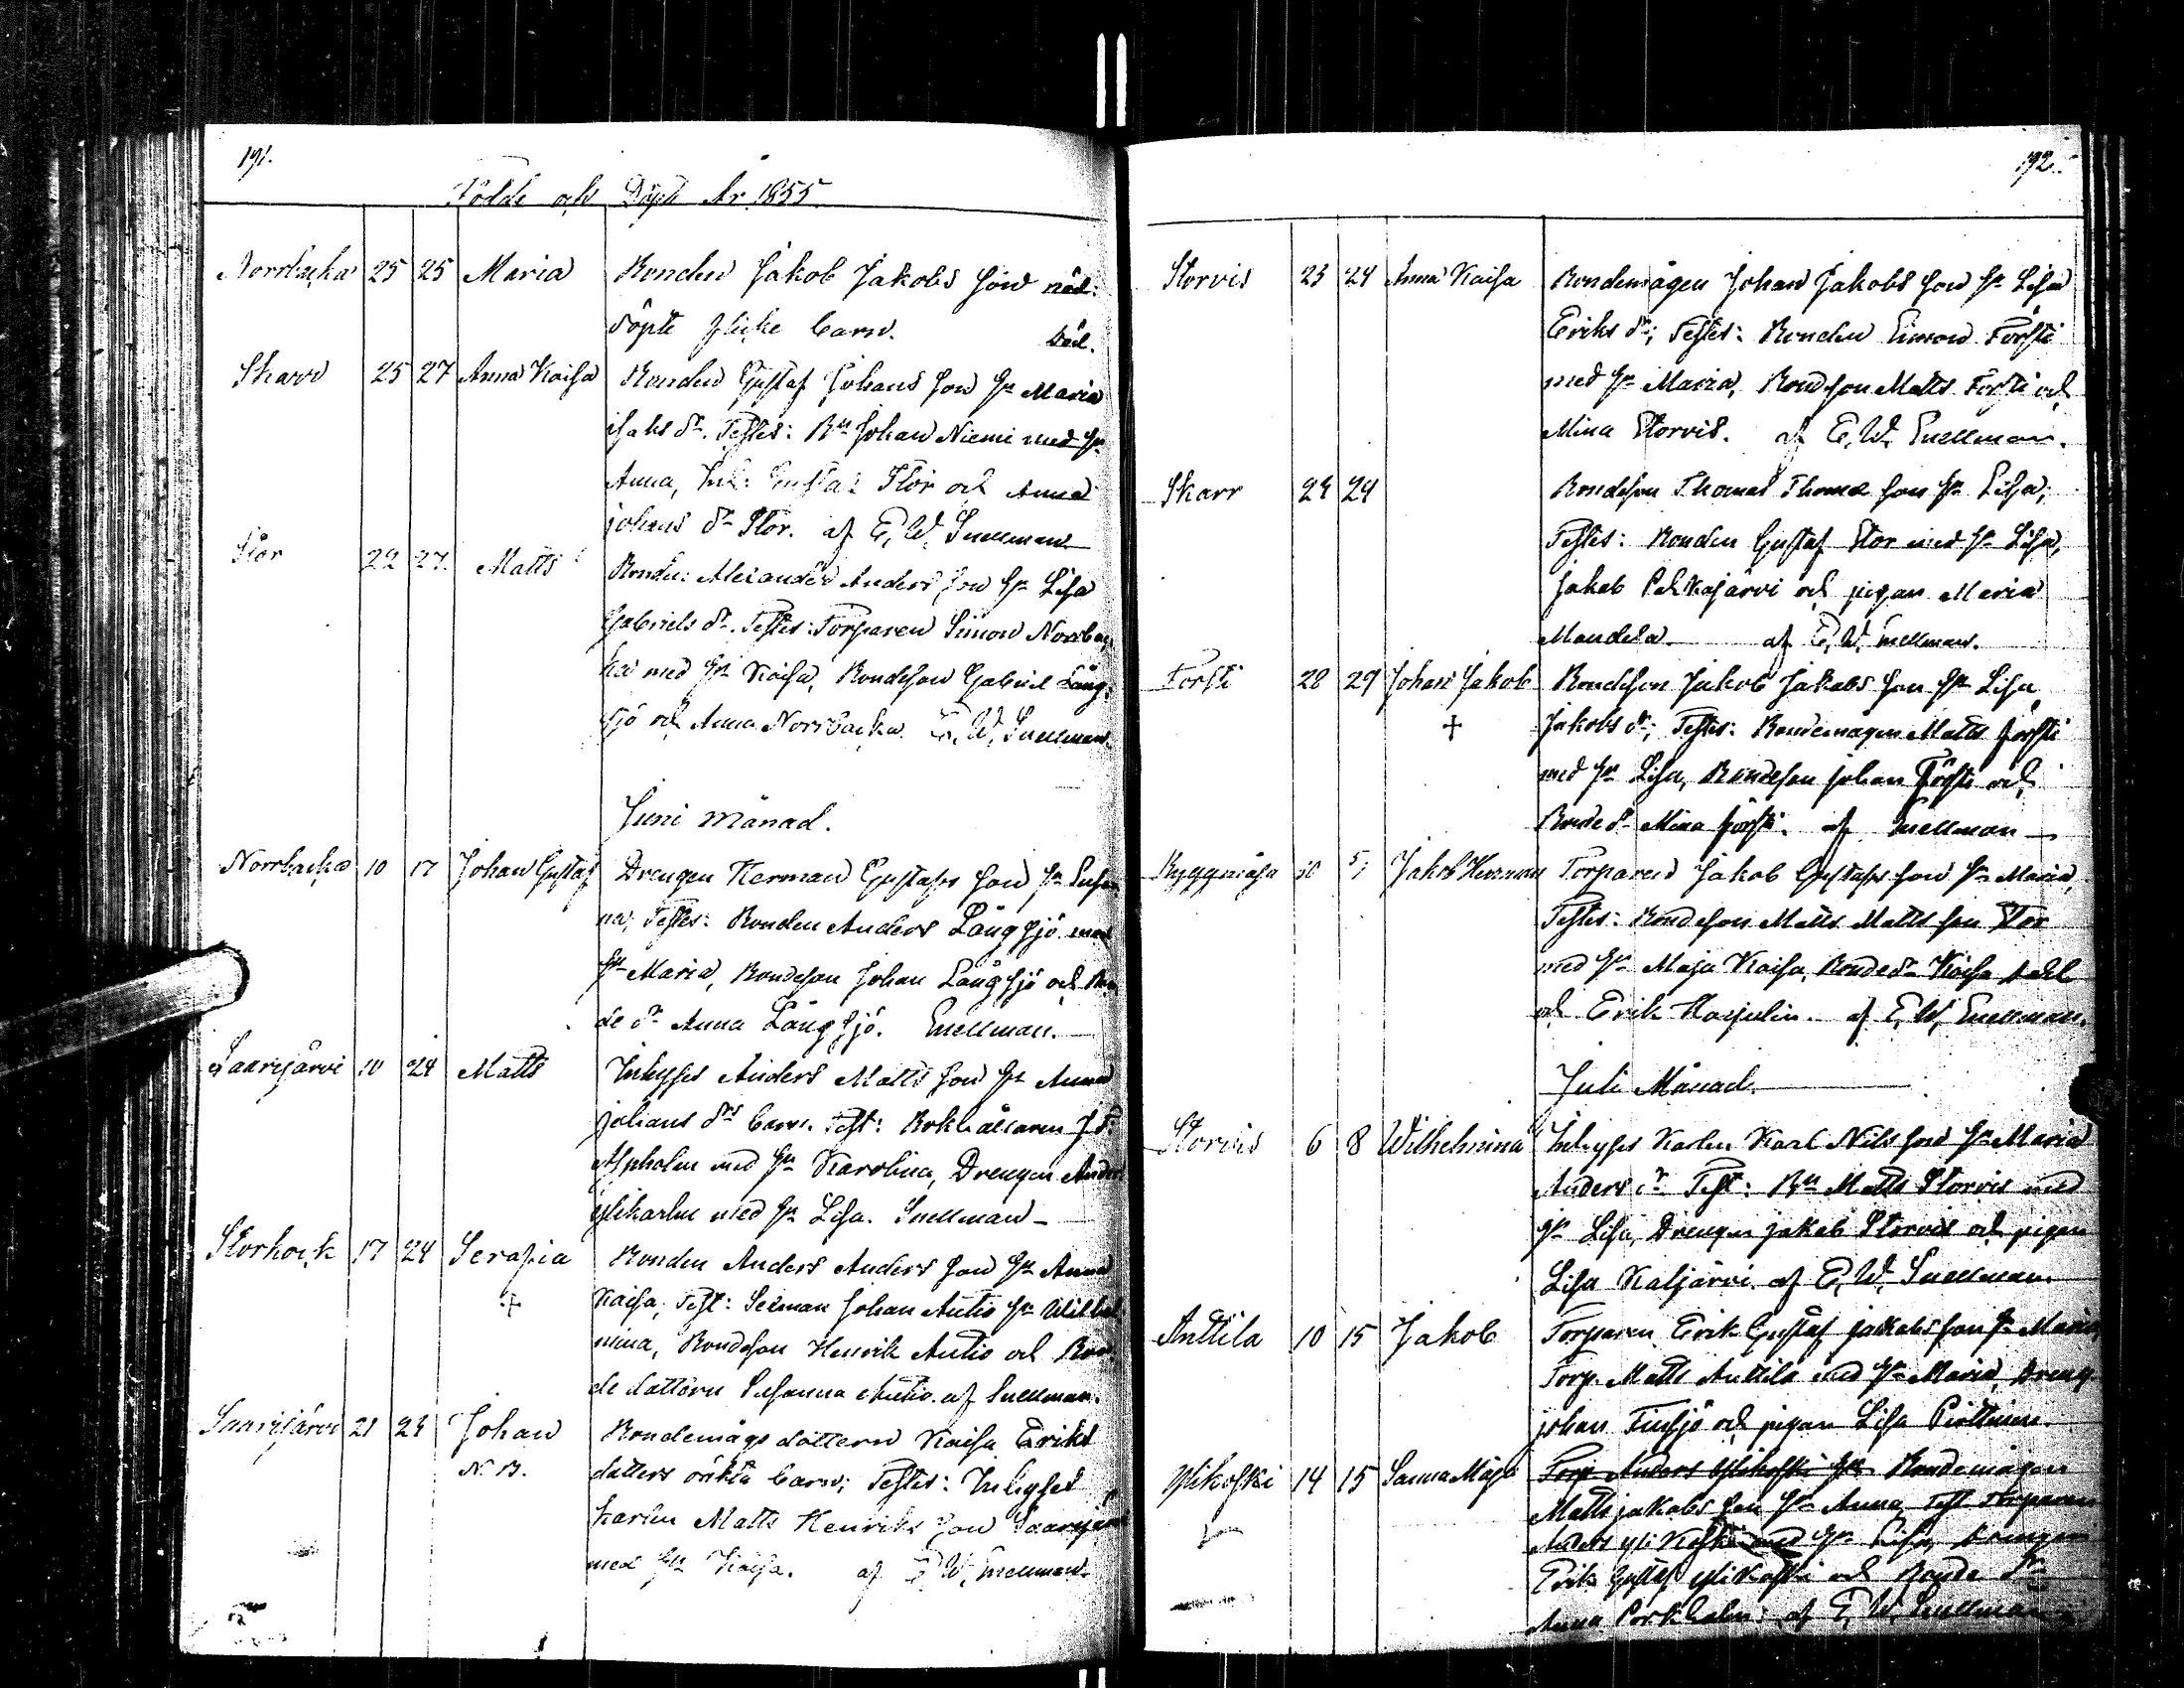 191.
Födde och Döpte År 1855.
Norrbacka 25 25 Maria Bonden Jakob Jakobs son nöd.
döpte flicke barn. Död.
Skarr 25 27 Anna Kaisa Bonden Gustaf Johans son hu Maria
isaks dr. Testes: Bn Johan Niemi med hu
Anna, Gustaf Stor och Anna
johans dr Stor. af E. W. Snellman
Stor 22 27. Matts Bonden Alexander Anders son hu Lisa
Gabriels dr. Testes: Torparen Simon Norrbac
ka med hu Kaisa, Bondeson Gabriel Lång
sjö och Anna Norrbacka. E. W. Snellman.
Juni Månad.
Norrbacka 10 17 Johan Gustaf Drengen Herman Gustafs son, hu Susan
na; Testes: Bonden Anders Långsjö med
hu Maria, Bondeson Johan Långsjö och Bon
de dr Anna Långsjö. Snellman.
Saarijärvi 10 24 Matts Inhyses Anders Matts son hu Anna
johans drs barn. Test: Bokhållaren J. F.
Aspholm med hu Karolina, Drengen Anders
ylikarhu med hu Lisa. Snellman
Storhock 17 24 Serafia Bonden Anders Anders son hu Anna
+ Kaisa, Test: Seeman Johan Autio hu Wilhel
mina, Bondeson Henrik Autio och Bon
de dottern Susanna Autio. af Snellman.
Saarijärvi 21 24 Johan Bondemågs dottern Kaisa Eriks
N. B. dotters oäkta barn; Testes: Inhyses
karlen Matts Henriks son Saarijärvi
med hu Kaisa. af E. W. Snellman.
192.
Storvis 23 24 Anna Kaisa Bondemågen Johan Jakobs son hu Lisa
Eriks dr; Testes: Bonden Simon Försti
med hu Maria, Bondson Matts Försti och
Mina Storvis. af E. W. Snellman.
Skarr 24 24 Bondeson Thomas Thomæ son hu Lisa,
Testes: Bonden Gustaf Stor med hu Lisa,
Jakob Pelkajärvi och pigan Maria
Mandela. af E. W. Snellman.
Försti 28 29 Johan Jakob Bondeson Jakob Jakobs son hu Lisa
+ Jakobs dr; Testes: Bondemågen Matts försti
med hu Lisa, Bondeson johan Försti och
Bonde dr Mina försti. af Snellman
Ryggmåsa Jakob Herman Torparen Jakob Gustafs son hu Maria,
Testes: Bondeson Matts Matts son Stor
med hu Maja Kaisa, Bonde dr Kaisa
och Erik Harjulin. af E. W. Snellman.
Juli Månad.
Storvis 6 8 Wilhelmina Inhyses Karlen Karl Nils son hu Maria
Anders dr Test: Bn Matts Storvis med
hu Lisa, Drengen jakob Storvis och pigan
Lisa Kaljärvi af E. W. Snellman
Anttila 10 15 Jakob Torparen Erik Gustaf jakobs son hu Maria,
Torp. Matts Anttila med hu Maria, Dreng
johan Finsjö och pigan Lisa
Ylikoski 14 15 Sanna Maja Torp Anders Ylikoski hu Bondemågen
Matts jakobs son hu Anna, Test Torparen
Anders yli Koski med hu Lisa, Drengen
Erik Gustaf yliKoski och Bonde dr
Anna Porkholm: af E. W. Snellman